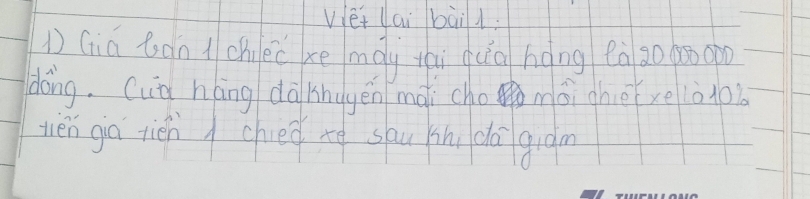 Viết lại bài 1:
1) Giá bán 1 chiếc xe máy tại cửa hàng là 20 000 000
đồng. Cửa hàng đã khuyến mãi cho mỗi chiếc xe là 10%
tiền giá tiền 1 chiếc xe sau khi đã giảm
THIEN LONG